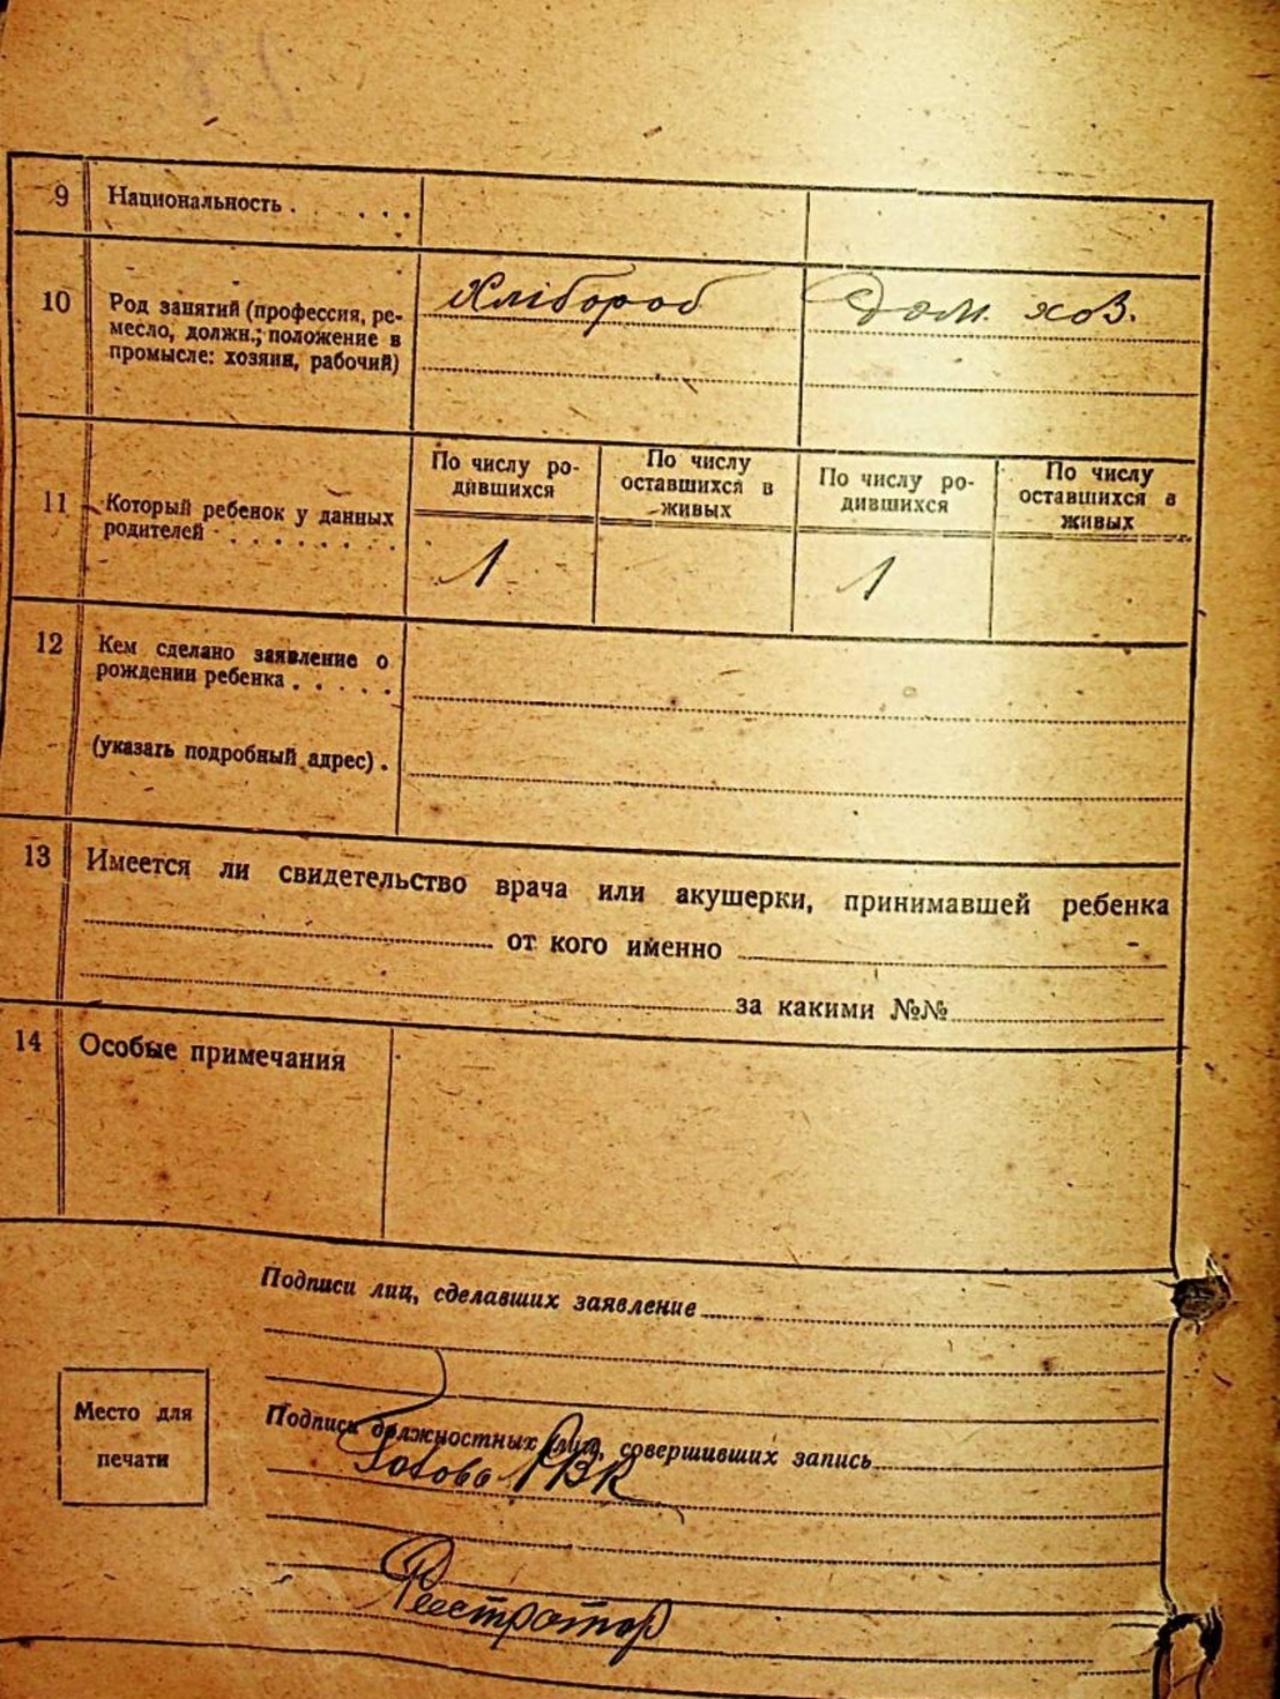 9 Национальность . . . . .
10 Род занятий (профессия, ре-
месло, должн.; положение в
промысле: хозяин, рабочий)
Хлібороб
Дом. хов.
11 Который ребенок у данных
родителей . . . . . . . .
По числу ро-
дившихся
По числу
оставшихся в
живых
По числу ро-
дившихся
По числу
оставшихся в
живых
1
1
12 Кем сделано заявление о
рождении ребенка . . . . .
(указать подробный адрес) .
13 Имеется ли свидетельство врача или акушерки, принимавшей ребенка
от кого именно
за какими №№
14 Особые примечания
Подписи лиц, сделавших заявление
Место для
печати
Подписи должностных лиц, совершивших запись
Голова РВК
Реєстратор